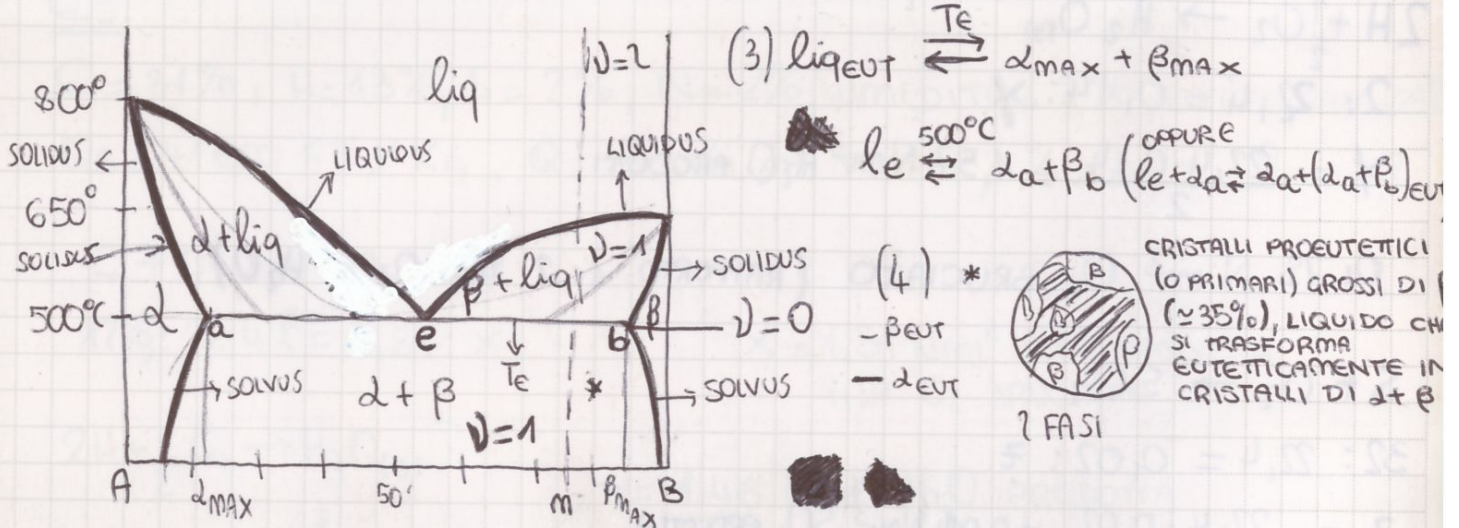 800°
650°
500°C
SOLIDUS
SOLIDUS
α
α+liq
LIQUIDUS
liq
ν=2
LIQUIDUS
ν=1
β+liq
β
SOLIDUS
a
e
b
ν=0
TE
SOLVUS
α+β
ν=1
*
SOLVUS
A
αMAX
50
m
βMAX
B
(3) liqEUT ⇄ αMAX + βMAX
TE
le ⇄ αa+βb (le+αa⇄ αa+(αa+βb)EUT
500°C
OPPURE
(4) *
- βEUT
— αEUT
β
β
β
β
2 FASI
CRISTALLI PROEUTETTICI
(O PRIMARI) GROSSI DI
(≃35%), LIQUIDO
SI TRASFORMA
EUTETTICAMENTE IN
CRISTALLI DI α+β